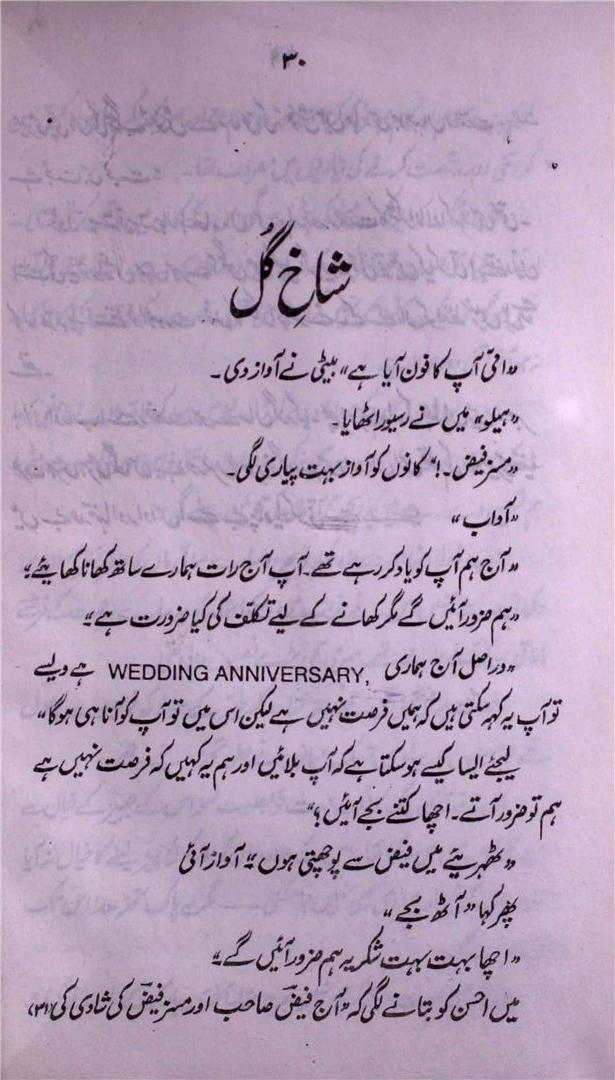 ۳۰
شاخِ گُل
"امّی آپ کا فون آیا ہے" بیٹی نے آواز دی۔
"ہیلو" میں نے رسیور اٹھایا۔
"مسز فیض۔!" کانوں کو آواز بہت پیاری لگی۔
"آداب"
"آج ہم آپ کو یاد کر رہے تھے۔ آپ آج رات ہمارے ساتھ کھانا کھایئے"
"ہم ضرور آئیں گے مگر کھانے کے لیے تکلّف کی کیا ضرورت ہے"
"دراصل آج ہماری WEDDING ANNIVERSARY, ہے ویسے
تو آپ یہ کہہ سکتی ہیں کہ ہمیں فرصت نہیں ہے لیکن اس میں تو آپ کو آنا ہی ہوگا"
لیجئے ایسا کیسے ہو سکتا ہے کہ آپ بلائیں اور ہم یہ کہیں کہ فرصت نہیں ہے
ہم تو ضرور آتے۔ اچھا کتنے بجے آئیں؟"
"ٹھہریئے میں فیض سے پوچھتی ہوں" آواز آئی
پھر کہا "آٹھ بجے"
"اچھا بہت بہت شکریہ ہم ضرور آئیں گے"
میں احسن کو بتانے لگی کہ "آج فیضؔ صاحب اور مسز فیضؔ کی شادی کی (۳۱)